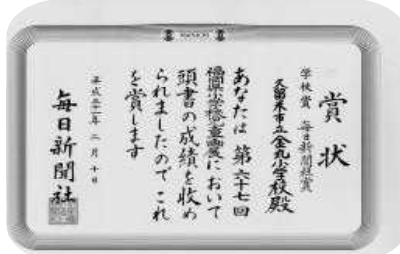 賞状
学校賞 毎日新聞社賞
久留米市立金丸小学校殿
あなたは 第六十七回
福岡県小学校児童画展において
頭書の成績を収め
られましたので これ
を賞します
平成二十一年 二月十日
毎日新聞社